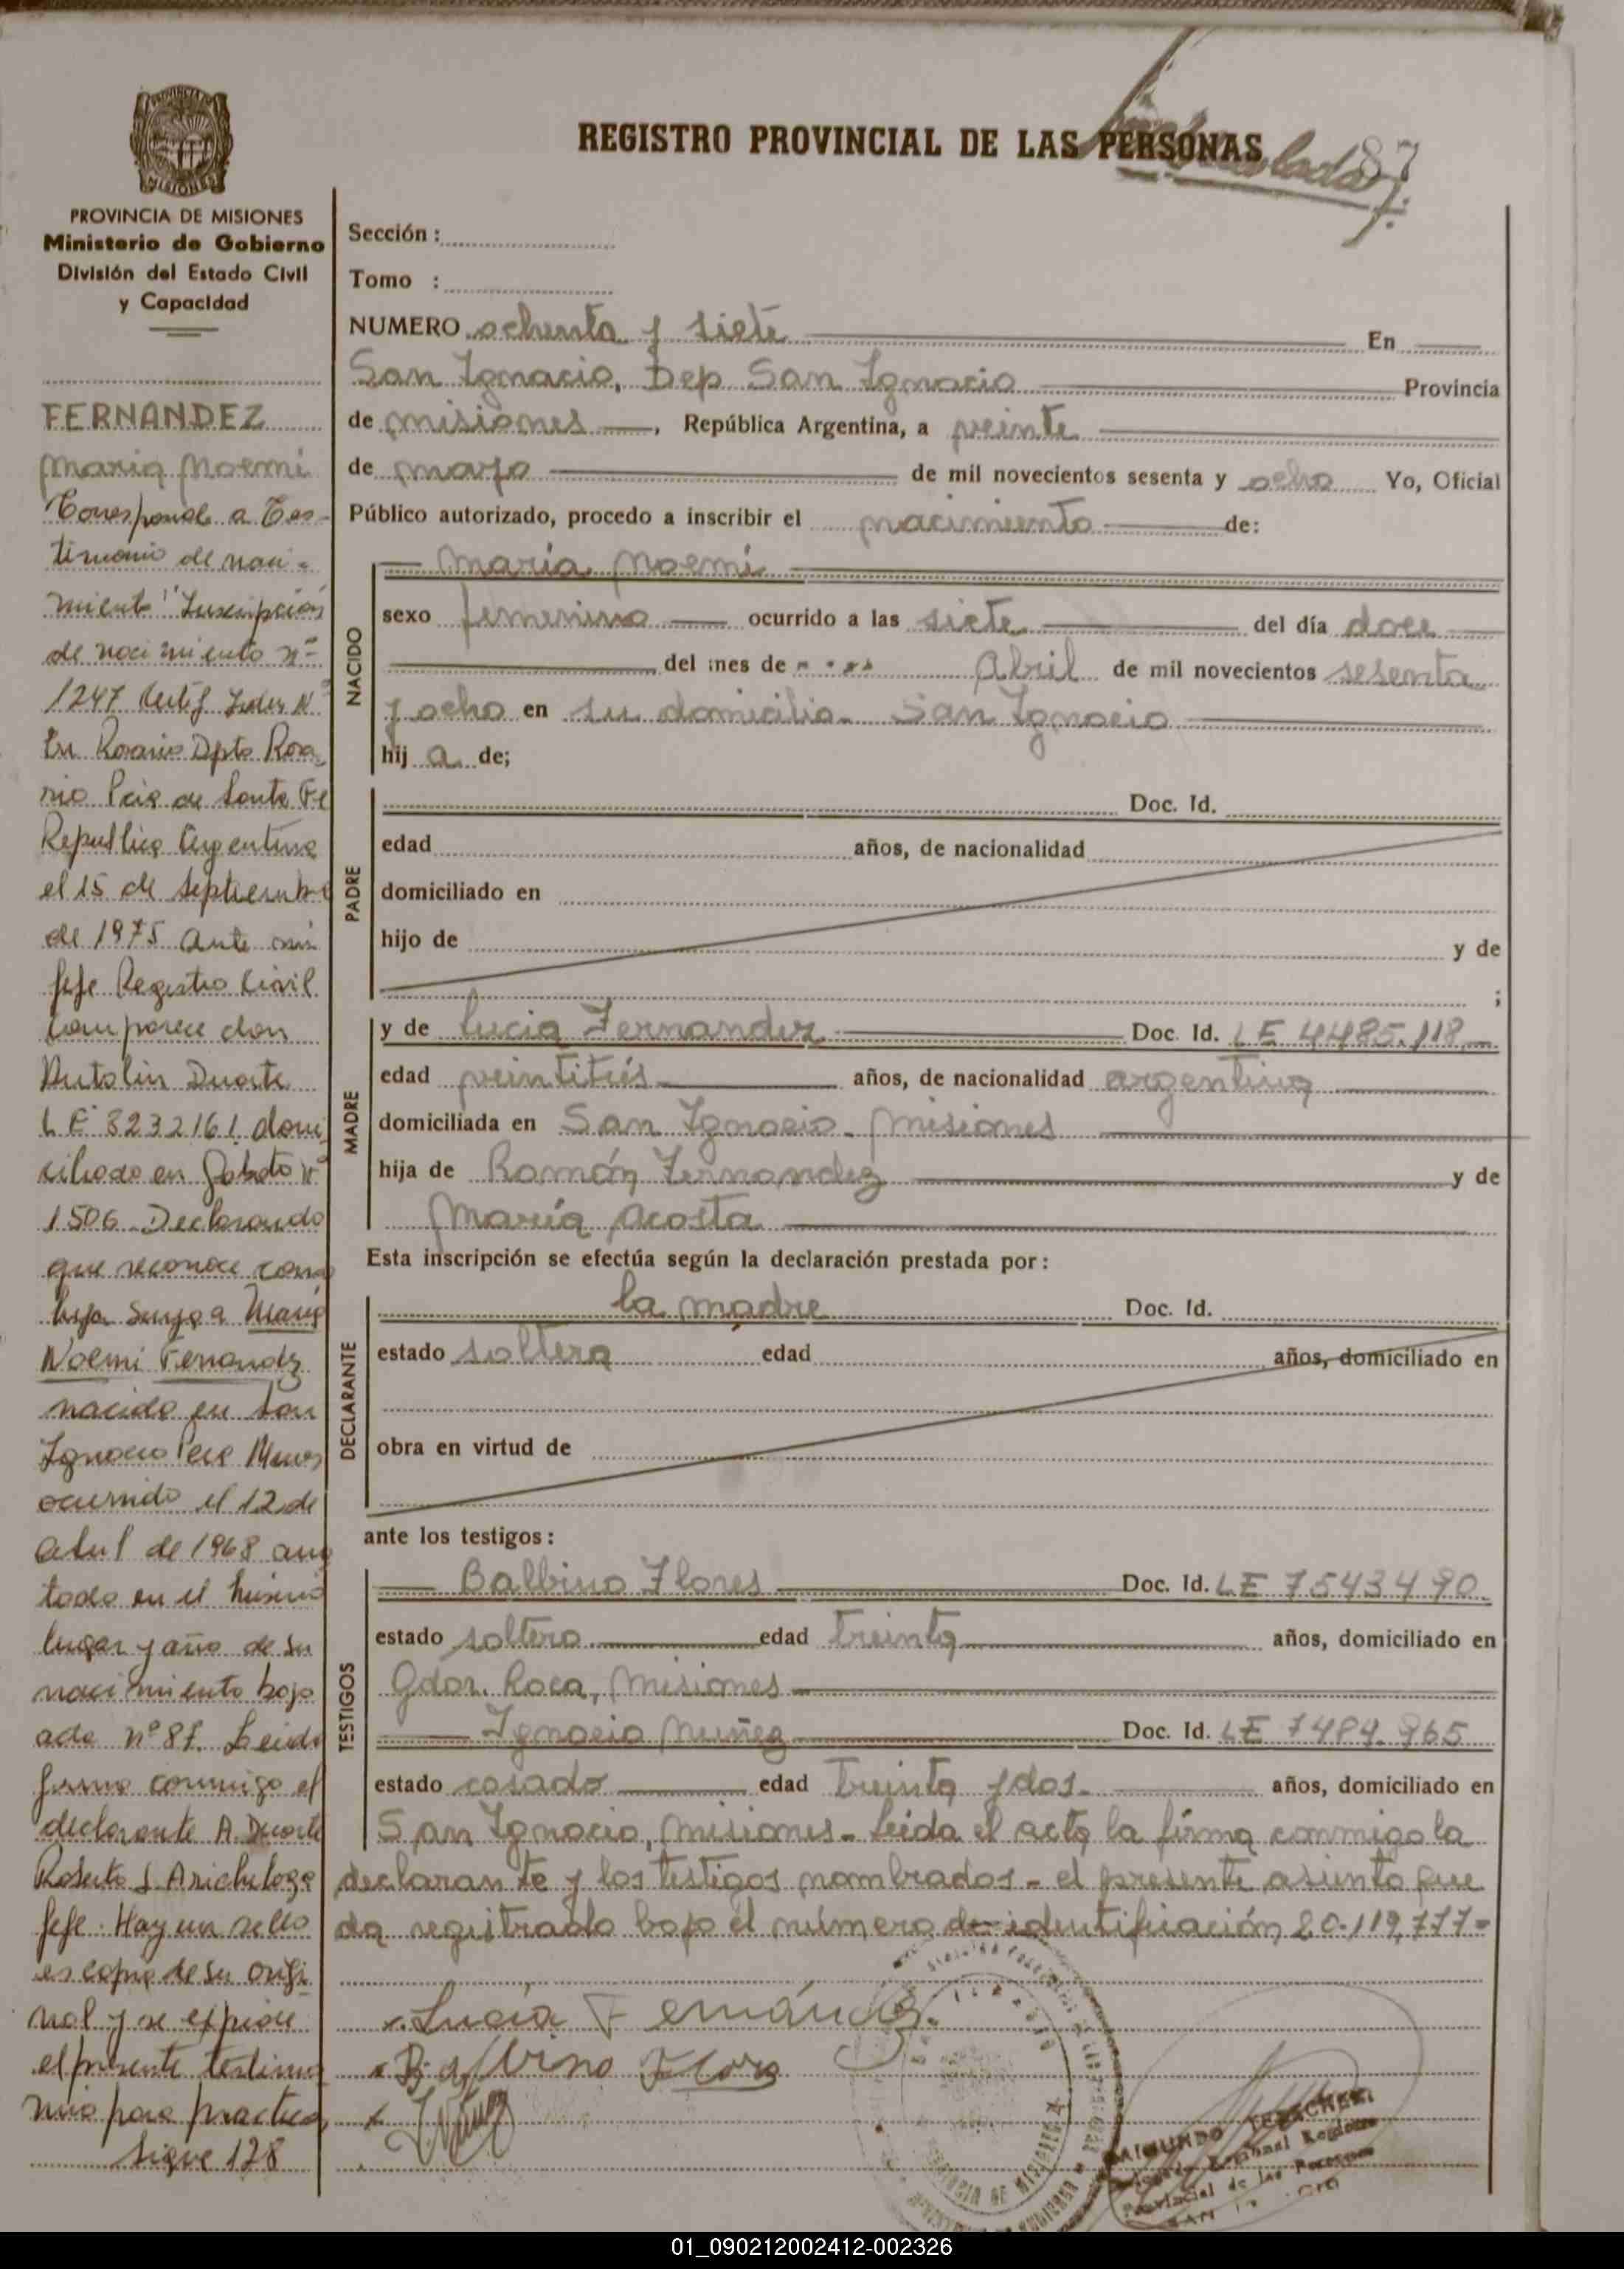 REGISTRO PROVINCIAL DE LAS PERSONAS
87
PROVINCIA DE MISIONES
Ministerio de Gobierno
División del Estado Civil
y Capacidad
FERNANDEZ
Maria Noemi
Corresponde a Tes-
timonio de naci-
miento "Inscripción
de nacimiento nº
1247
En Rosario Dpto Rosa
rio Pcia de Santa Fe
Republica Argentina
el 15 de septiembre
de 1975 ante mi
Jefe Registro Civil
comparece don
Antolin Duarte
L E 3232161 domi
ciliado en Gaboto nº
1506 Declarando
que reconoce como
hija suya a Maria
Noemi Fernandez
nacida en San
Ignacio Pcia
ocurrido el 12 de
abril de 1968 ano
tado en el mismo
lugar y año de su
nacimiento bajo
acta nº 87. Leida
firma conmigo el
declarante A. Duarte
Roberto J
Jefe. Hay un sello
es copia de su origi
nal y se expide
el presente testimo
nio para
Sigue 128
Sección :
Tomo :
NUMERO ochenta y siete En
San Ignacio, Dep San Ignacio Provincia
de Misiones, República Argentina, a veinte
de mayo de mil novecientos sesenta y ocho Yo, Oficial
Público autorizado, procedo a inscribir el nacimiento de:
NACIDO
Maria Noemi
sexo femenino ocurrido a las siete del día doce
del mes de Abril de mil novecientos sesenta
y ocho en su domicilio. San Ignacio
hij a de;
PADRE
Doc. Id.
edad años, de nacionalidad
domiciliado en
hijo de y de
;
MADRE
y de Lucia Fernandez Doc. Id. LE 4485.118
edad veintitrés años, de nacionalidad argentina
domiciliada en San Ignacio - Misiones
hija de Ramón Fernandez y de
María Acosta
Esta inscripción se efectúa según la declaración prestada por :
DECLARANTE
la madre Doc. Id.
estado soltera edad años, domiciliado en
obra en virtud de
ante los testigos :
TESTIGOS
Balbino Flores Doc. Id. LE 7543490
estado soltero edad treinta años, domiciliado en
Gdor. Roca, Misiones
Ignacio Nuñez Doc. Id. LE 7484.965
estado casado edad treinta y dos. años, domiciliado en
San Ignacio, Misiones - Leida el acta la firma conmigo la
declarante y los testigos nombrados - el presente asiento que
da registrado bajo el número de identificación 20.119.777-
Lucía Fernández.
Balbino Flores
01_090212002412-002326